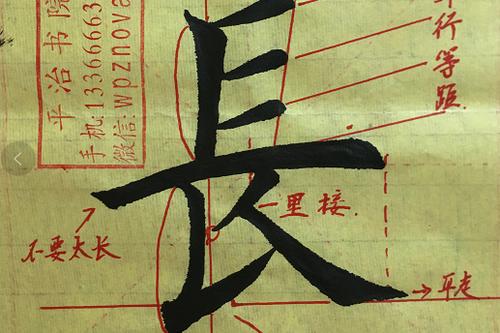 平行等距
長
一里接.
不要太长
→平走
平治书院
手机:133666663
微信:wpznova